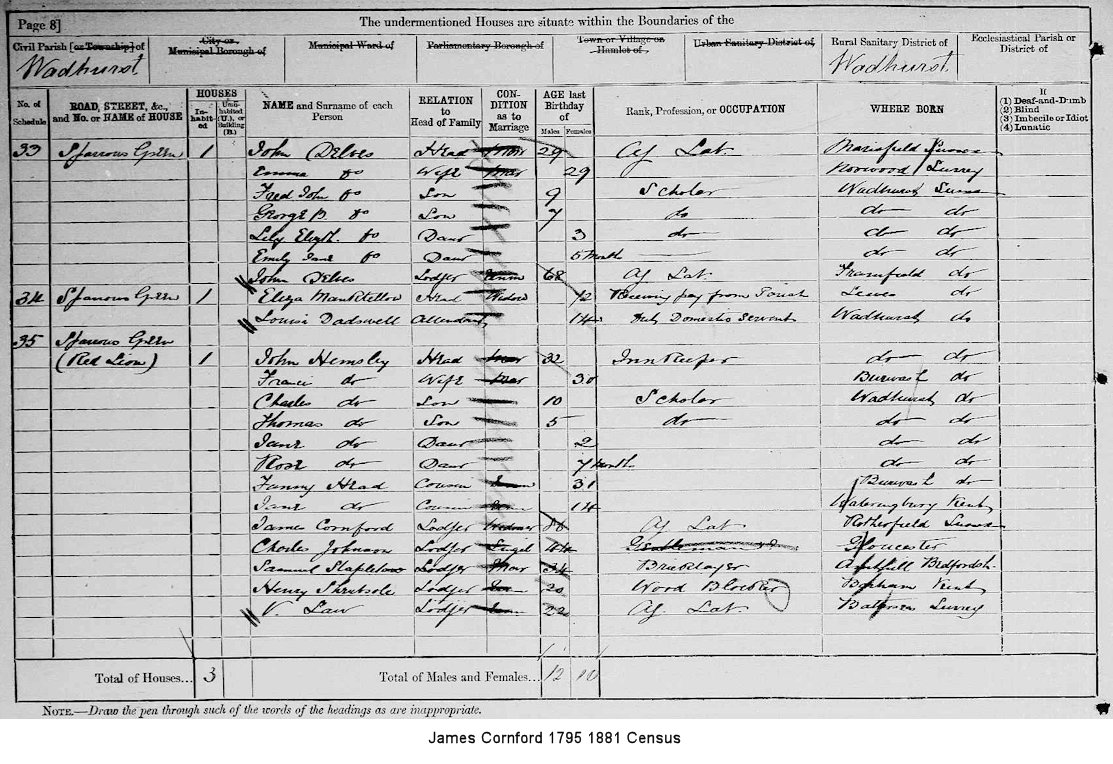 Page 8]
The undermentioned Houses are situate within the Boundaries of the
Civil Parish [or Township] of
City or Municipal Borough of
Municipal Ward of
Parliamentary Borough of
Town or Village or Hamlet of
Urban Sanitary District of
Rural Sanitary District of
Ecclesiastical Parish or District of
Wadhurst
Wadhurst
No. of Schedule
ROAD, STREET, &c., and No. or NAME of HOUSE
HOUSES
Inhabited
Uninhabited (U.), or Building (B.)
NAME and Surname of each Person
RELATION to Head of Family
CONDITION as to Marriage
AGE last Birthday of
Males
Females
Rank, Profession, or OCCUPATION
WHERE BORN
If
(1) Deaf-and-Dumb
(2) Blind
(3) Imbecile or Idiot
(4) Lunatic
33 Sparrows Green 1 John Delves Head Mar 29 Ag Lab Maresfield Sussex
Emma do Wife Mar 29 Norwood Surrey
Fred John do Son 9 Scholar Wadhurst Sussex
George B. do Son 7 do do do
Lily Elizth. do Daur 3 do do do
Emily Jane do Daur 5 Month do do
John Delves Lodger 68 Ag Lab Framfield do
34 Sparrows Green 1 Eliza Head Widow 72 Receiving pay from Parish Lewes do
Louisa Dadswell Attendant 14 Domestic Servant Wadhurst do
35 Sparrows Green
(Red Lion) 1 John Hemsley Head Mar 32 Innkeeper do do
Francis do Wife Mar 30 Burwash do
Charles do Son 10 Scholar Wadhurst do
Thomas do Son 5 do do do
Jane do Daur 2 do do
Rose do Daur 7 Months do do
Fanny Head Cousin 31 Burwash do
Jane do Cousin 14 Wateringbury Kent
James Cornford Lodger Widower 86 Ag Lab Rotherfield Sussex
Charles Johnson Lodger 44 Gloucester
Samuel Stapleton Lodger Mar 34 Bricklayer Ampthill Bedfordsh.
Henry Shrubsole Lodger 20 Wood Kent
V. Law Lodger 22 Ag Lab Battersea Surrey
Total of Houses... 3
Total of Males and Females... 12 10
NOTE.—Draw the pen through such of the words of the headings as are inappropriate.
James Cornford 1795 1881 Census